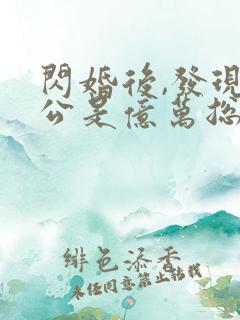 閃婚後,發現
公是億萬總
緋色添香
未經同意禁止轉載